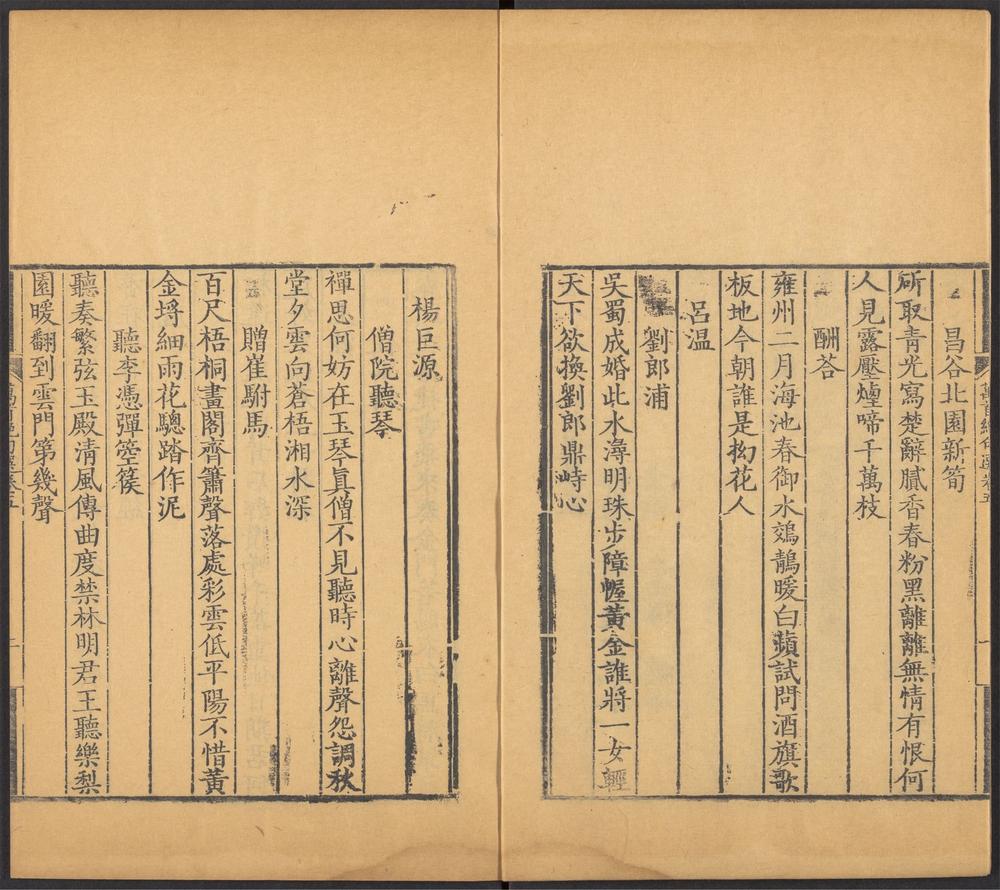 昌谷北園新筍
斫取青光寫楚辭膩香春粉黑離離無情有恨何
人見露壓煙啼千萬枝
酬荅
雍州二月海池春御水鵁鶄暖白蘋試問酒旗歌
板地今朝誰是拗花人
呂温
劉郎浦
吳蜀成婚此水潯明珠步障幄黃金誰將一女輕
天下欲換劉郎鼎峙心
楊巨源
僧院聽琴
禪思何妨在玉琴真僧不見聽時心離聲怨調秋
堂夕雲向蒼梧湘水深
贈崔駙馬
百尺梧桐畫閣齊簫聲落處彩雲低平陽不惜黃
金埒細雨花驄踏作泥
聽李憑彈箜篌
聽奏繁弦玉殿清風傳曲度禁林明君王聽樂梨
園暖翻到雲門第幾聲